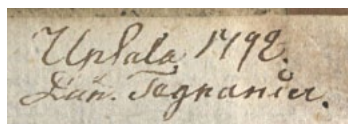 Upsala 1792.
Dan. Tegnander.